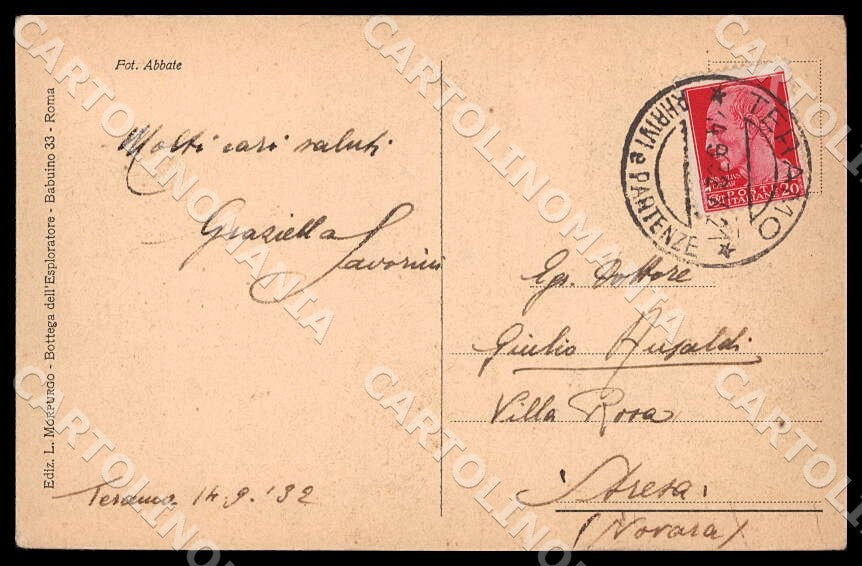 Fot. Abbate
Ediz. L. MORPURGO - Bottega dell'Esploratore - Babuino 33 - Roma
Molti cari saluti
Graziella
Savorini
Teramo 14.9.'32
TERAMO
ARRIVI e PARTENZE
POSTE
ITALIANE
20
Eg. Dottore
Giulio
Villa Rosa
Stresa
(Novara)
CARTOLINOMANIA
CARTOLINOMANIA
CARTOLINOMANIA
CARTOLINOMANIA
CARTOLINOMANIA
CARTOLINOMANIA